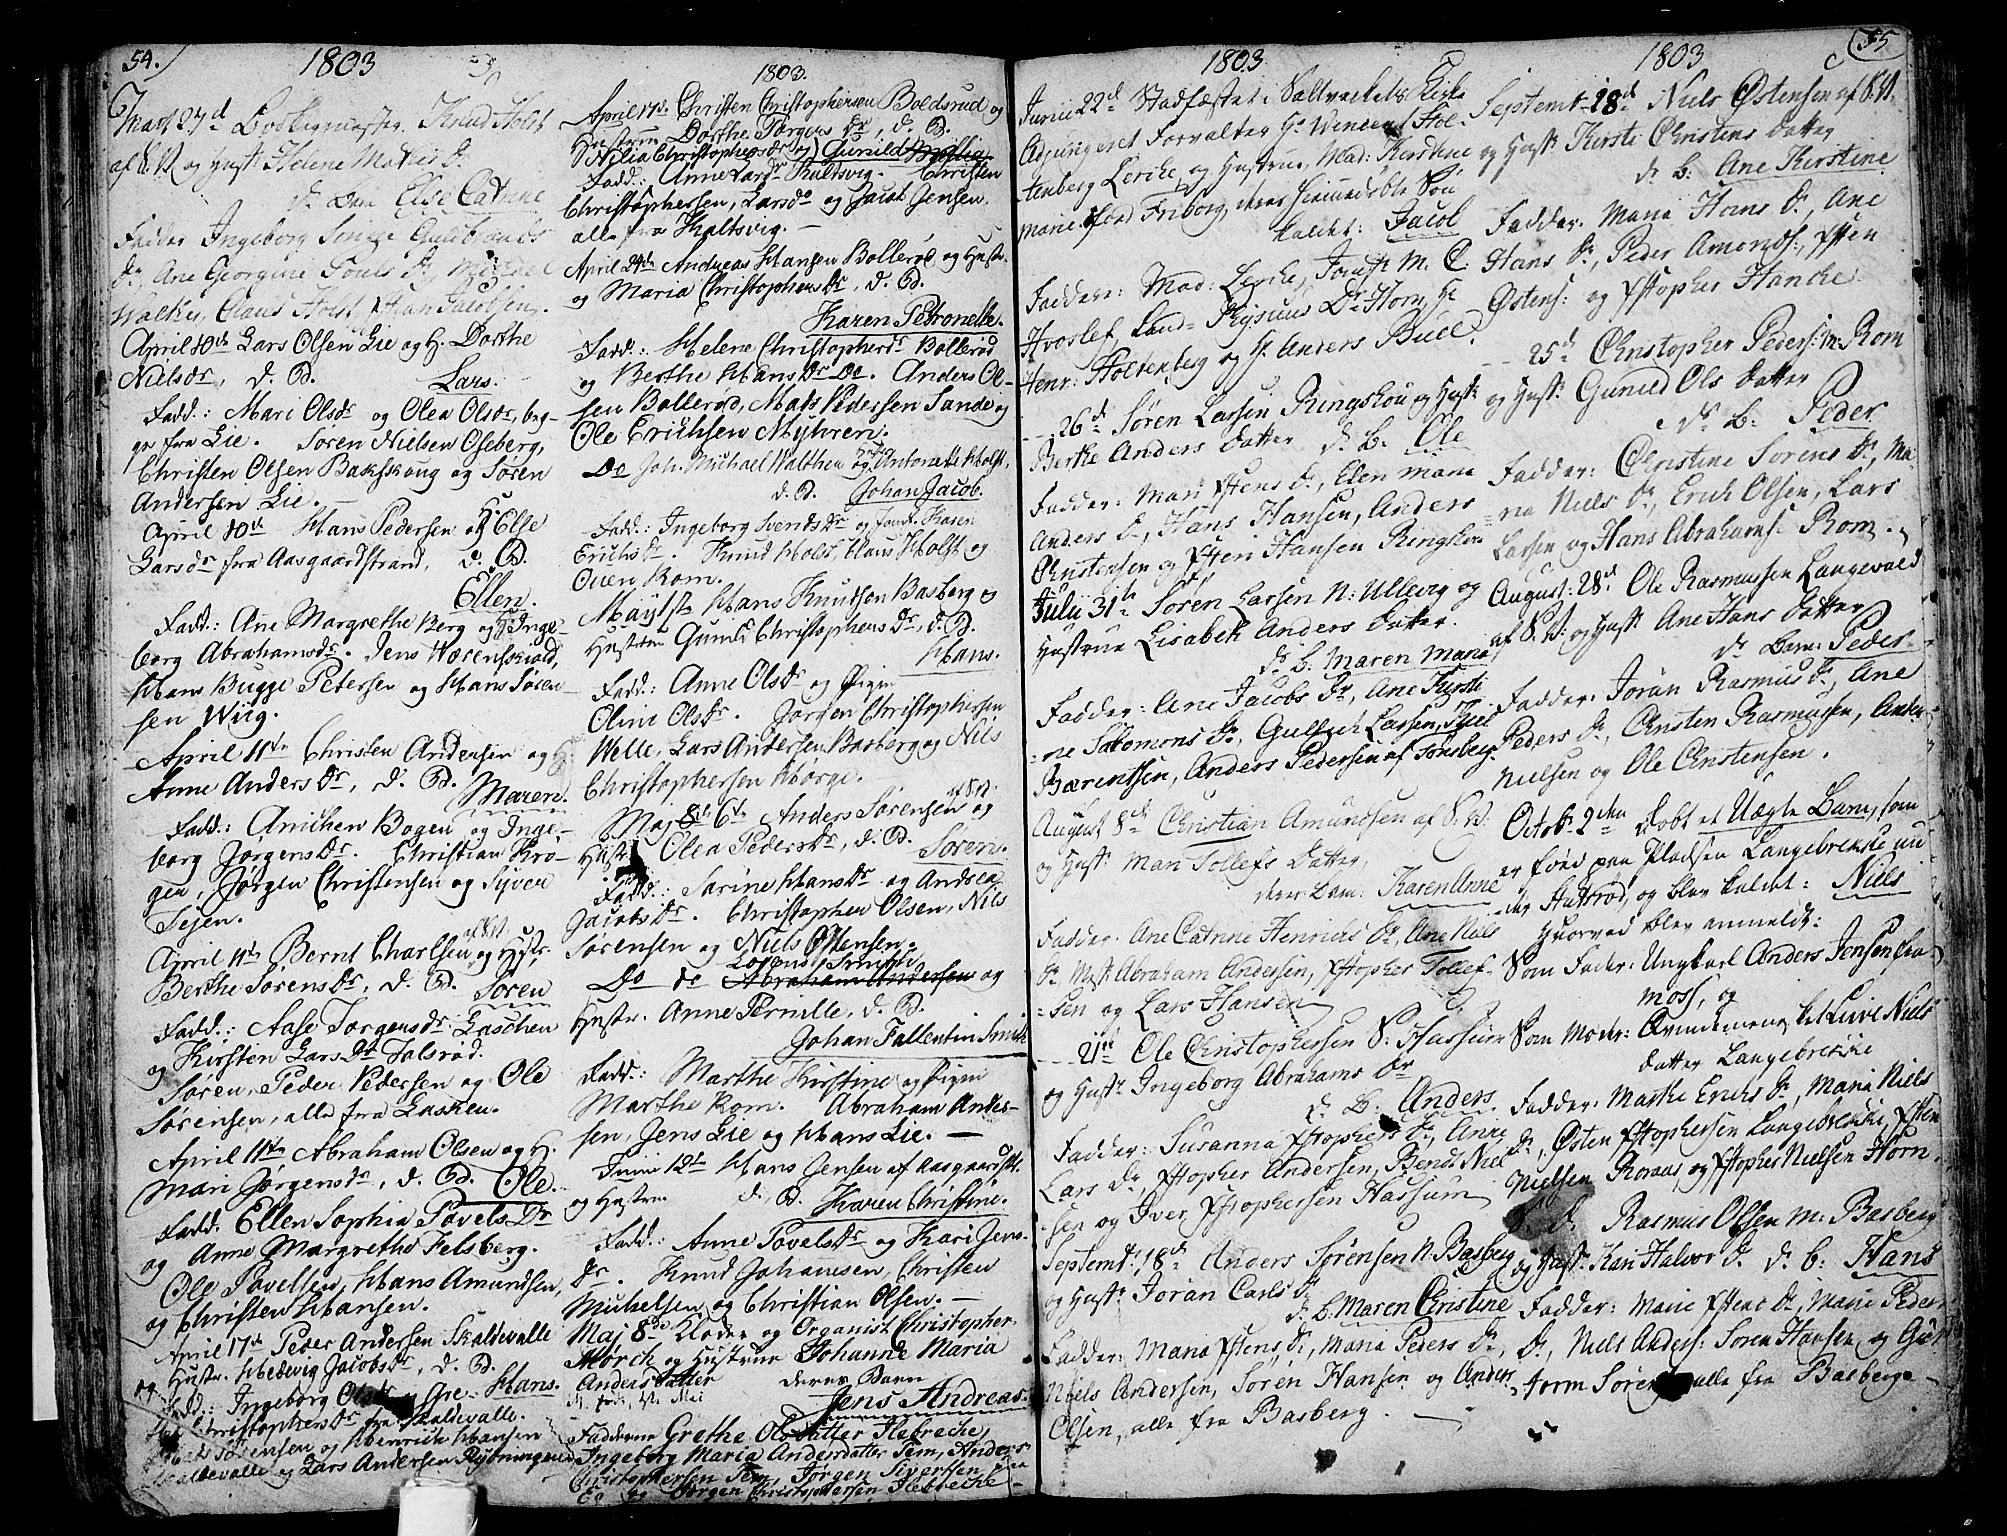 54.
1803
Mart 27d Bödkermester Knud Holst
af S.V. og Hust Helene Mathis Dr
Dr Barn Else Catrine
Fadder Ingeborg
Dr, Ane Georgine Povls Dr, Michael
Walther, Claus Holst, Johan Jacobsen.
April 10de Lars Olsen Lie og H. Dorthe
Nielsdr, d. B. Lars.
Fadd.: Mari Olsdr og Olea Olsdr, beg-
ge fra Lie. Søren Nielsen Oseberg,
Christen Olsen Bakskoug og Søren
Andersen Lie. —
April 10de Hans Pedersen og H. Else
Larsdr fra Aasgaardstrand, d. B.
Ellen.
Fadd.: Ane Margrethe Berg og Inge-
borg Abrahamsdr. Jens Værenskiold,
Hans Bugge Petersen og Hans Søren-
sen Wiig.
April 11te Christen Andersen og H.
Anne Andersdr, d. B. Maren.
Fadd.: Anichen Bogen og Inge-
borg Jørgensdr. Christian Krø-
gen, Jørgen Christensen og Syver
Tejen.
April 11te Bernt Charlsen af S.V. og Hustr.
Berthe Sørensdr, d. B. Søren
Fadd.: Aase Torgersdr Laschen
og Kirsten Larsdr Falsrød.
Søren, Peder Pedersen og Ole
Sørensen, alle fra Lasken.
April 11te Abraham Olsen og H.
Mari Jørgensdr, d. B. Ole.
Fadd. Ellen Sophia Povels Dr
og Anne Margrethe Felsberg.
Ole Povelsen, Hans Amundsen,
og Christen Hansen.
April 17de Peder Andersen Skaldevalle
og Hustr. Hedevig Jacobsdr, d. B.
Fadd.: Ingeborg Olsdr og Gre- Hans.
the Christophersdr fra Skaldevalle.
Mads Sørensen og Henrich Hansen
Skaldevalle og Lars Andersen Rybningen
1803.
April 17d. Christen Christophersen Boldsrud og
Hustrue Dorthe Torgers Dr, d. B.
Nilia Christophersdr og Gunild
Fadd.: Anne Larsdr Kaltsvig. Christen
Christophersen, Lars do og Jacob Jensen,
alle fra Kaltsvig. —
April 24de Andreas Hansen Bollerød og Hustr.
og Maria Christophersdr, d. B.
Karen Petronelle.
Fadd.: Helene Christophersdr Bollerød
og Berthe Hansdr Do. Anders Ol-
sen Bollerød, Mats Pedersen Sande og
Ole Erichsen Myhren.
Do Joh. Michael Walther og Antonette Holst,
d. B. Johan Jacob.
Fadd.: Ingeborg Svendsdr og Jomfr. Karen
Erichsdr. Knud Holst, Claus Holst og
Ouen Rom.
May 1ste Hans Knudsen Basberg og
Hustrue Gunild Christophers Dr, d. B.
Hans.
Fadd.: Anne Olsdr og Pigen
Oline Olsdr. Jørgen Christophersen
Welle, Lars Andersen Basberg og Nils
Christophersen Hørge.
Maj 6te Anders Sørensen af S.V. og
Hustr. Olea Pedersdr, d. B. Søren.
Fadd.: Sarine Hansdr og Andrea
Jacobsdr. Christopher Olsen, Nils
Sørensen og Niels Ottensen.
Do do Lorens Smith Abraham Andersen og
Hustr. Anne Pernille, d. B.
Johan Fallentin Smith
Fadd.: Marthe Kirstine og Pigen
Marthe Rom. Abraham Ander-
sen, Jens Lie og Hans Lie. —
Junii 12te Hans Jensen af Aasgaardst.
og Hustrue d. B. Karen Christine.
Fadd.: Anne Povelsdr og Kari Jens-
dr. Knud Johansen, Christen
Michelsen og Christian Olsen. —
Maj 8de Klocker og Organist Christopher
Mørch og Hustrue Johanne Maria
Andersdatter deres Barn
Jens Andreas.
Fadderne Grethe Olsdatter Flebreche,
Ingeborg Maria Andersdatter Tem, Anders
Christophersen Tem, Jørgen Sivertsen
Jørgen Christophersen Flebreche
1803
Junii 22d Stadfæstet i Saltværkets Kirke
Adjungeret Forvalter Hr Wenden Hol-
tenberg Lerche, og Hustrue, Mad: Kirstine
Marie fød Friborg, deres hiemmedøbte Søn
kaldet: Jacob
Fadder: Mad: Lerche, Jomfr. M. C:
Hvoslef, Land= Physicus Dr Horn, Hr
Henr: Holtenberg og Hr. Anders Buel.
— 26d Søren Larsen Ringshou og Hustr
Berthe Anders Datter d. B. Ole
Fadder: Mari Iftens Dr, Elen Marie
Anders Dr, Hans Hansen, Anders
Christensen og Iften Hansen Ringshou
Julii 31te Søren Larsen N: Ullevig og
Hustrue Lisabeth Anders Datter.
dr B: Maren Maria
Fadder: Ane Jacobs Dr, Ane Kirsti-
ne Salomons Dr, Gullich Larsen, Niels
Bærentsen, Anders Pedersen af Tønsberg.
August 8de Christian Amundsen af S.V:
og Hustr Mari Tollefs Datter,
deres Barn: Karen Anne
Fadder: Ane Catrine Henrichs Dr, Ane Niels
Dr, Mst Abraham Andersen, Xstopher Tollef-
sen og Lars Hansen
— 21de Ole Christophersen S: Hassum
og Hustr Ingeborg Abrahams Dr
d. B: Anders
Fadder: Susanna Xstophers Dr, Anne
Lars Dr, Xstopher Andersen, Bendt Niel-
sen og Iver Xstophersen Hassum
Septemt: 18de Anders Sørensen N: Basberg
og Hustr Joran Carls Dr
d. B. Maren Christine
Fadder: Maria Iftens Dr, Maria Peders Dr,
Niels Andersen, Søren Hansen og Anders
Olsen, alle fra Basberg. —
1803
55
Septemt: 18d Niels Østensen af S.V.
og Hustr Kirsti Christens Datter
dr B: Ane Kirstine
Fadder: Maria Hans Dr, Ane
Hans Dr, Peder Amonds:, Iften
Østens: og Xstopher Hancke
— 25de Christopher Peders: M: Rom
og Hustr Gunild Ols Datter
dr B: Peder
Fadder: Christine Sørens Dr, Ma-
ria Niels Dr, Erich Olsen, Lars
Larsen og Hans Abrahams: Rom.
August: 28d Ole Rasmussen Langevald
af S.V: og Hustr Ane Hans Datter
dr Barn: Peder
Fadder: Joran Rasmus Dr, Ane
Peders Dr, Christen Rasmussen, Anders
Nielsen og Ole Christensen.
Octobr: 2den Døbt et Uægte Barn, som
er fød paa Pladsen Langebrekke un-
der Hutsrød, og blev kaldet: Niels
Hvorved blev anmeldt:
Som Fader: Ungkarl Anders Jensen fra
Moss, og
Som Moder: Qvindemennesket Live Niels
Datter Langebrekke
Fadder: Marthe Erichs Dr, Maria Niels
Dr, Østen Xstophersen Langebrekke, Iften
Nielsen Roraas, og Xstopher Nielsen Horn.
S. D. Rasmus Olsen M: Basberg
og Hustr Kari Halvor Dr d. B: Hans
Fadder: Marie Iftens Dr, Marie Peders
Dr, Niels Anders: Søren Hansen, og Gut-
torm Sørens: alle fra Basberg. —